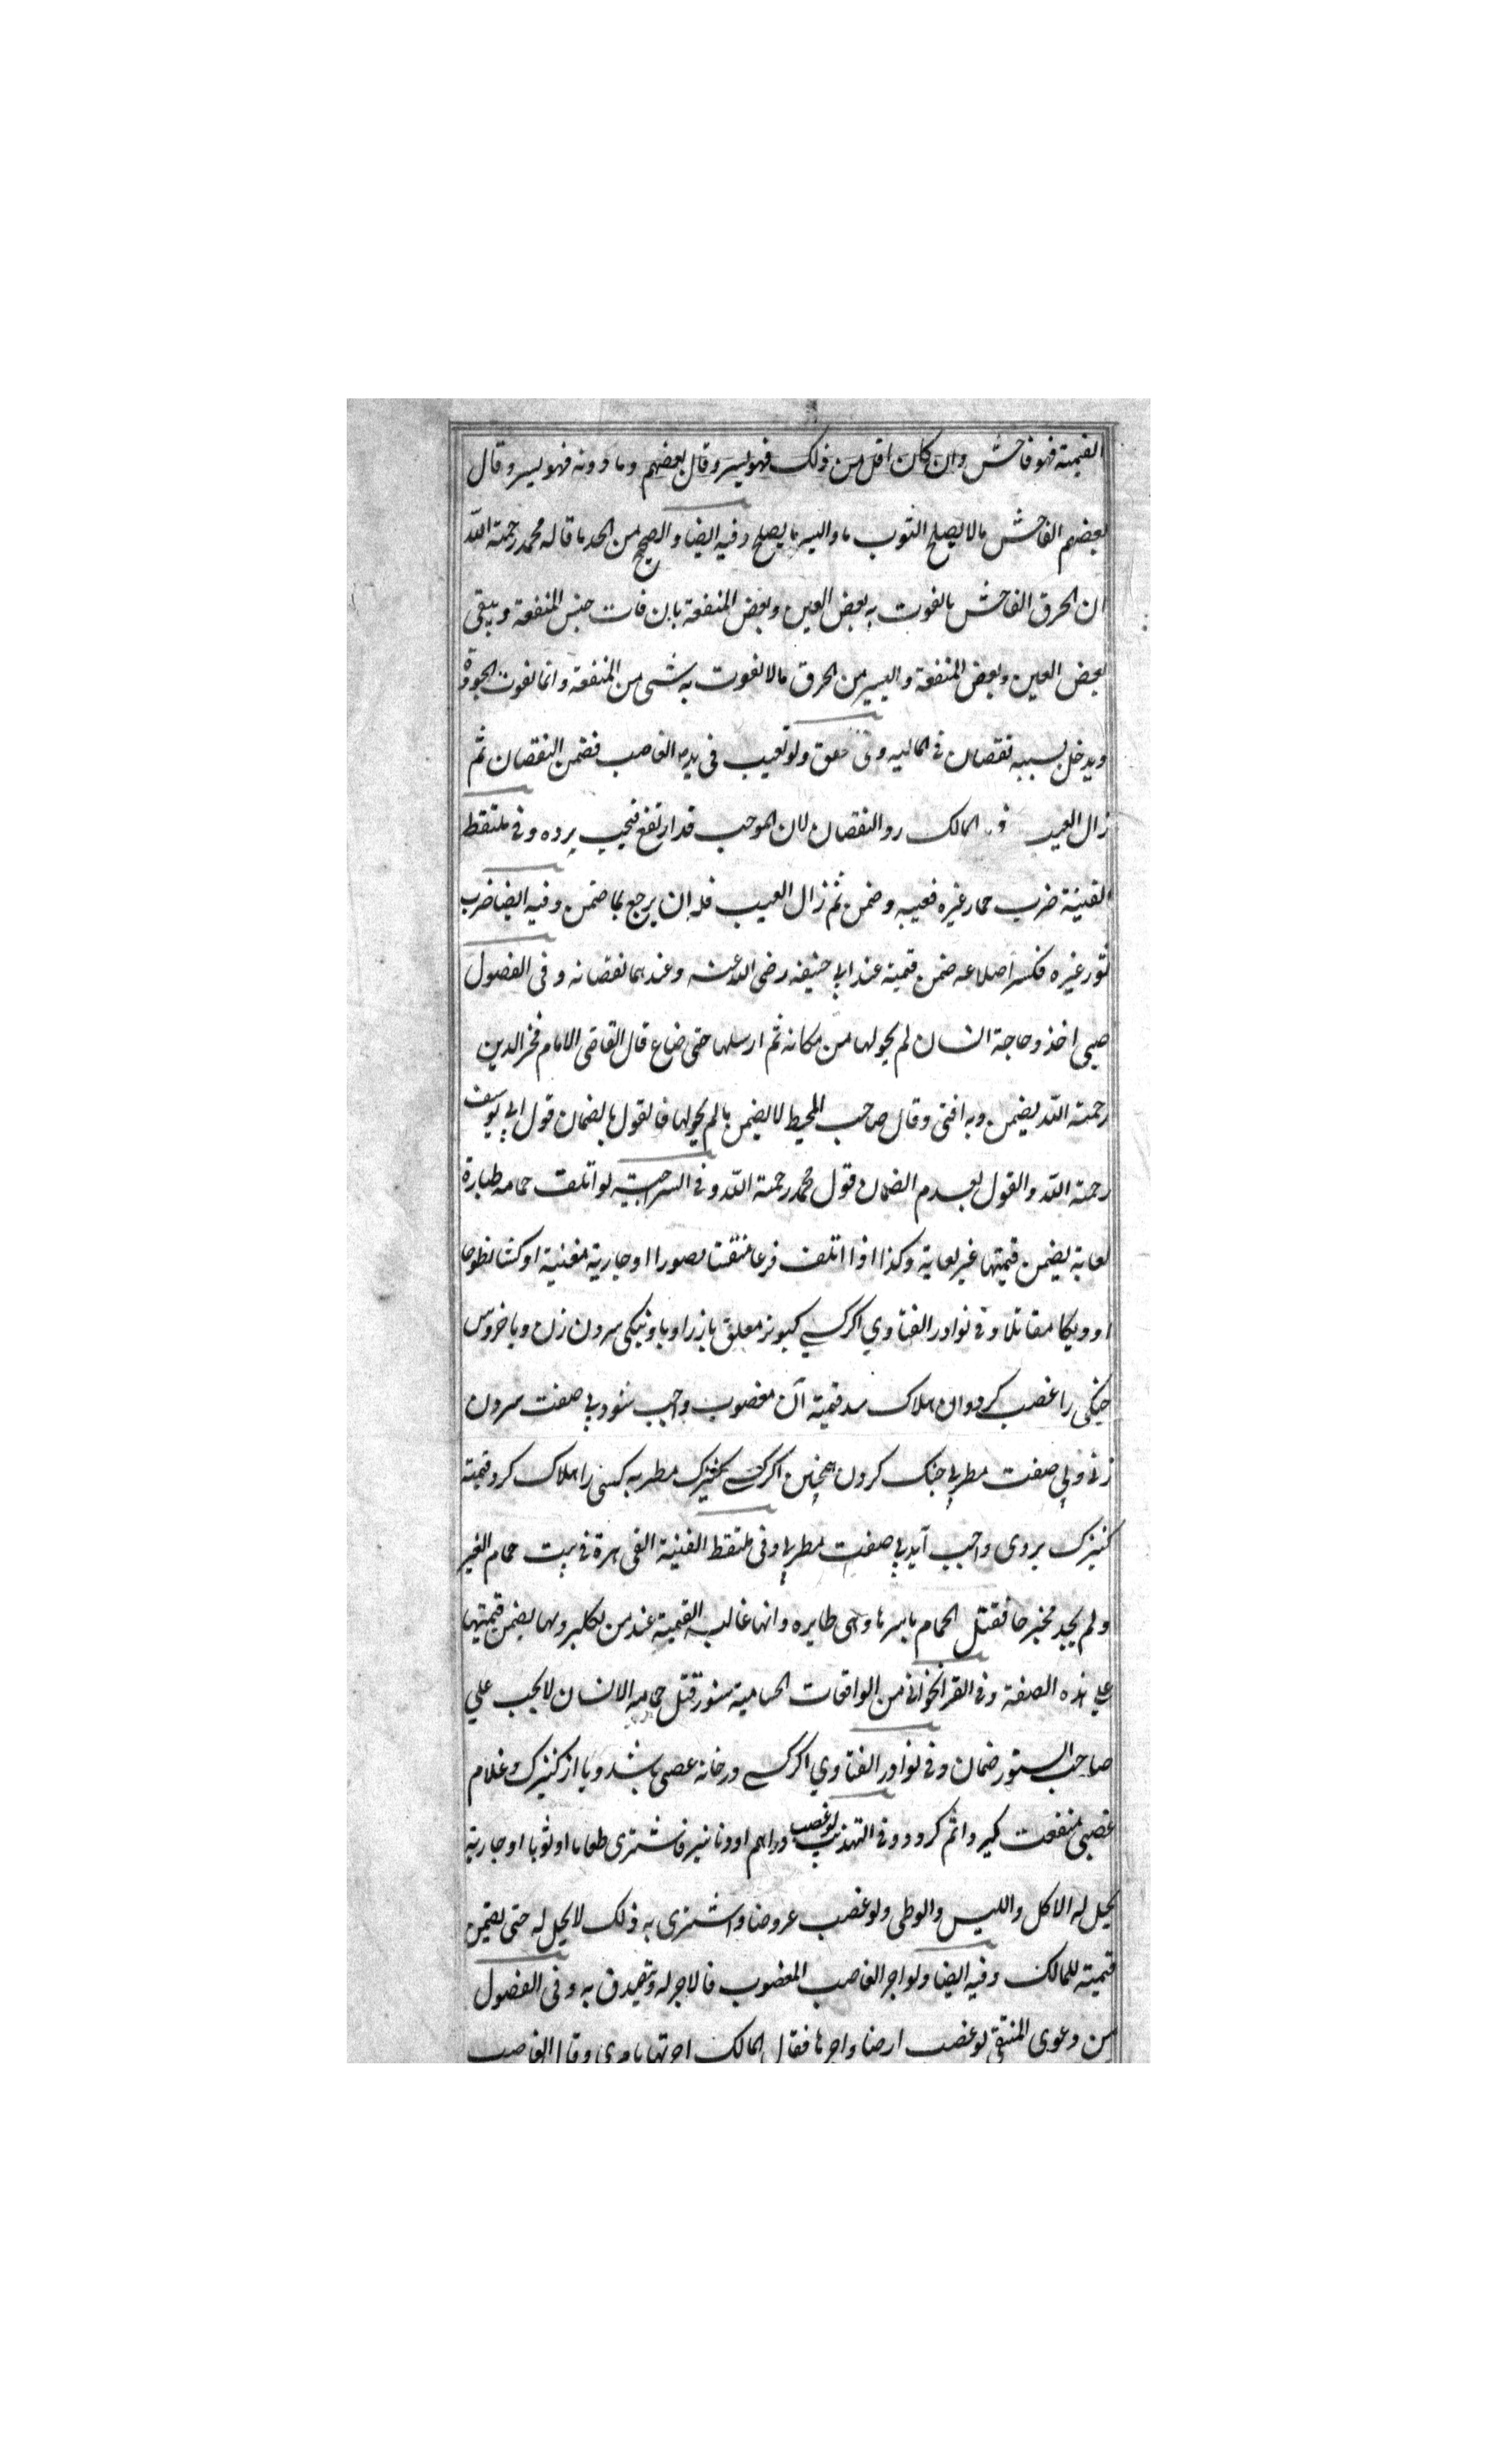 القيمة فهو فاحش وان كان اقل من ذلك فهو يسير وقال بعضهم وما دونه فهو يسير وقال
بعضهم الفاحش مالا يصلح الثوب ما واليسر ما يصلح وفيه ايضا والصحيح من الحد ما قاله محمد رحمة الله
ان الخرق الفاحش ما يفوت به بعض العين وبعض المنفعة بان فات جنس المنفعة ويبقى
بعض العين وبعض المنفعة واليسير من الخرق مالا يفوت به شى من المنفعة وانما يفوت الجودة
ويدخل بسببه نقصان في المالية وفى ولو تعيب فى يد الغاصب فضمن النقصان ثم
زال العيب المالك رد النقصان لان الموجب قد ارتفع فيجب برده وفي ملتقط
القنية ضرب حمار غيره فعيبه وضمن ثم زال العيب فله ان يرجع بما ضمن وفيه ايضا ضرب
ثور غيره فكسر اضلاعه ضمن قيمته عند ابي حنيفه رضى الله عنه وعندهما نقصانه وفى الفصول
صبى اخذ دجاجة انسان لم يحولها من مكانه ثم ارسلها حتى ضاع قال القاضى الامام فخر الدين
رحمة الله يضمن وبه افتى وقال صاحب المحيط لا يضمن مالم يحولها فالقول بالضمان قول ابي يوسف
رحمة الله والقول بعدم الضمان قول محمد رحمة الله وفي السراجية لو اتلف حمامه طيارة
لعابة يضمن قيمتها غير لعابة وكذا اذا اتلف او جارية مغنية او كبشا نطوحا
او ديكا مقاتلا وفي نوادر الفتاوي اكر كسي كبوتر معلق باز را ويا سرون زن ويا خروس
جنكى را غصب كرد وان هلاك شد قيمة آن مغصوب واجب شود بي صفت سرون
زني وبي صفت مطربي جنك كردن همچنين اكر كسي كنيزك مطربه كسى را هلاك كرد قيمة
كنيزك بر وى واجب آيد بي صفت مطربي وفى ملتقط القنية القى هرة في بيت حمام الغير
ولم يجد مخرجا فقتل الحمام باسرها وهى طايره وانها غالب القيمة عند من يضمن قيمتها
علي هذه الصفة وفي القراخواني من الواقعات الحسامية سنور قتل حمامه الانسان لا يجب علي
صاحب السنور ضمان وفي نوادر الفتاوي اكر كسي در خانه غصبى باشد ويا از كنيزك وغلام
غصبى منفعت كيرد اثم كردد وفي التهذيب لو غصب دراهم او دنانير فاشترى طعاما او ثوبا او جارية
يحل له الاكل واللبس والوطى ولو غصب عروضا واشترى به ذلك لا يحل له حتى يضمن
قيمته للمالك وفيه ايضا ولو اجر الغاصب المغصوب فالاجر له ويتصدق به وفى الفصول
من دعوى المنتقى لو غصب ارضا واجرها فقال المالك اجرتها بامرى وقال الغاصب